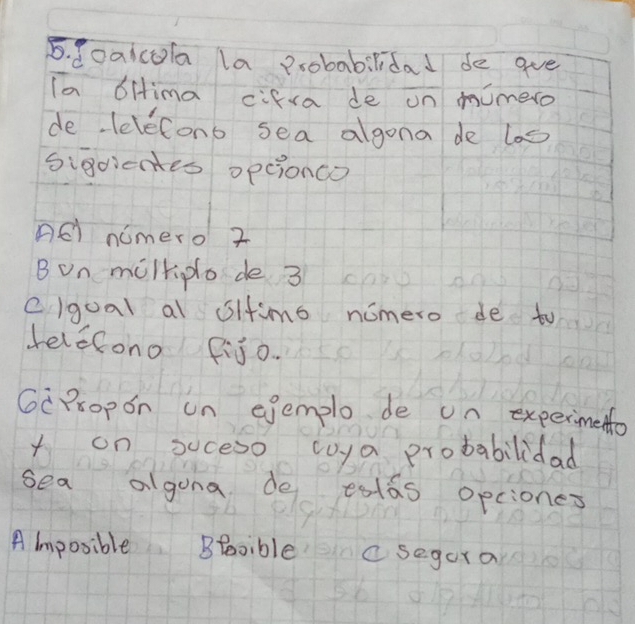 5. Calcula la Probabilidad de que
la última cifra de un número
de teléfono sea alguna de los
siguientes opciones
A El número 7
B Un múltiplo de 3
C Igual al último número de tu
teléfono fijo.
6 Propón un ejemplo de un experimento
y un suceso cuya probabilidad
sea alguna de estás opciones
A Imposible B Posible C segura